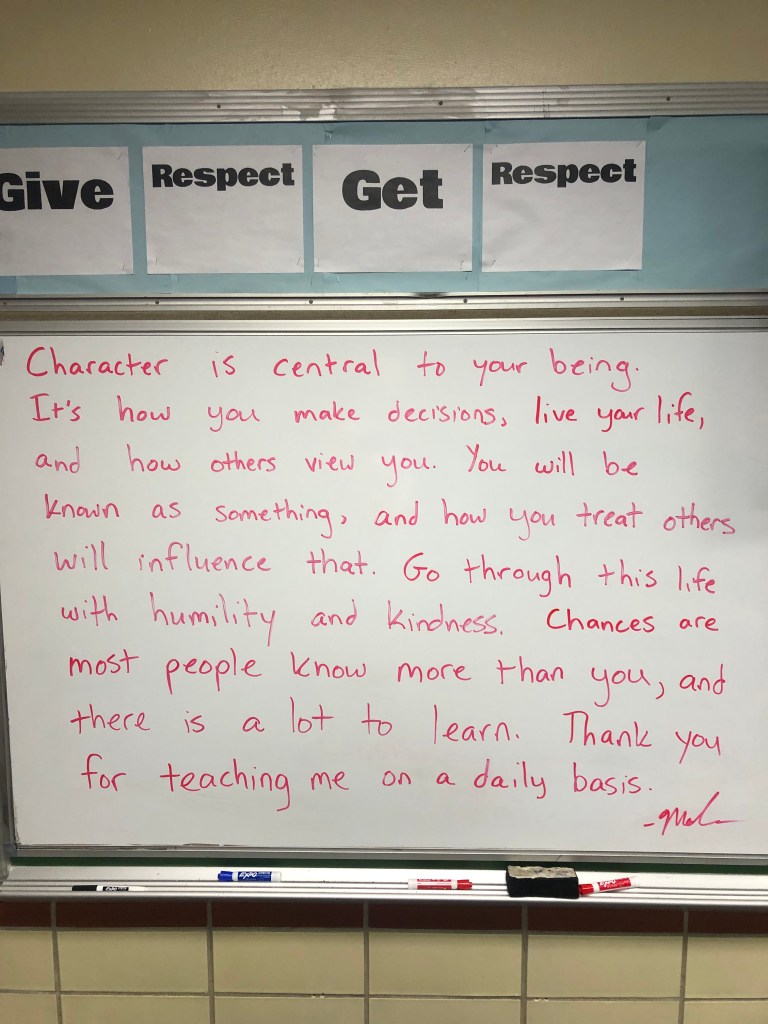 Give Respect Get Respect
Character is central to your being.
It's how you make decisions, live your life,
and how others view you. You will be
known as something, and how you treat others
will influence that. Go through this life
with humility and kindness. Chances are
most people know more than you, and
there is a lot to learn. Thank you
for teaching me on a daily basis.